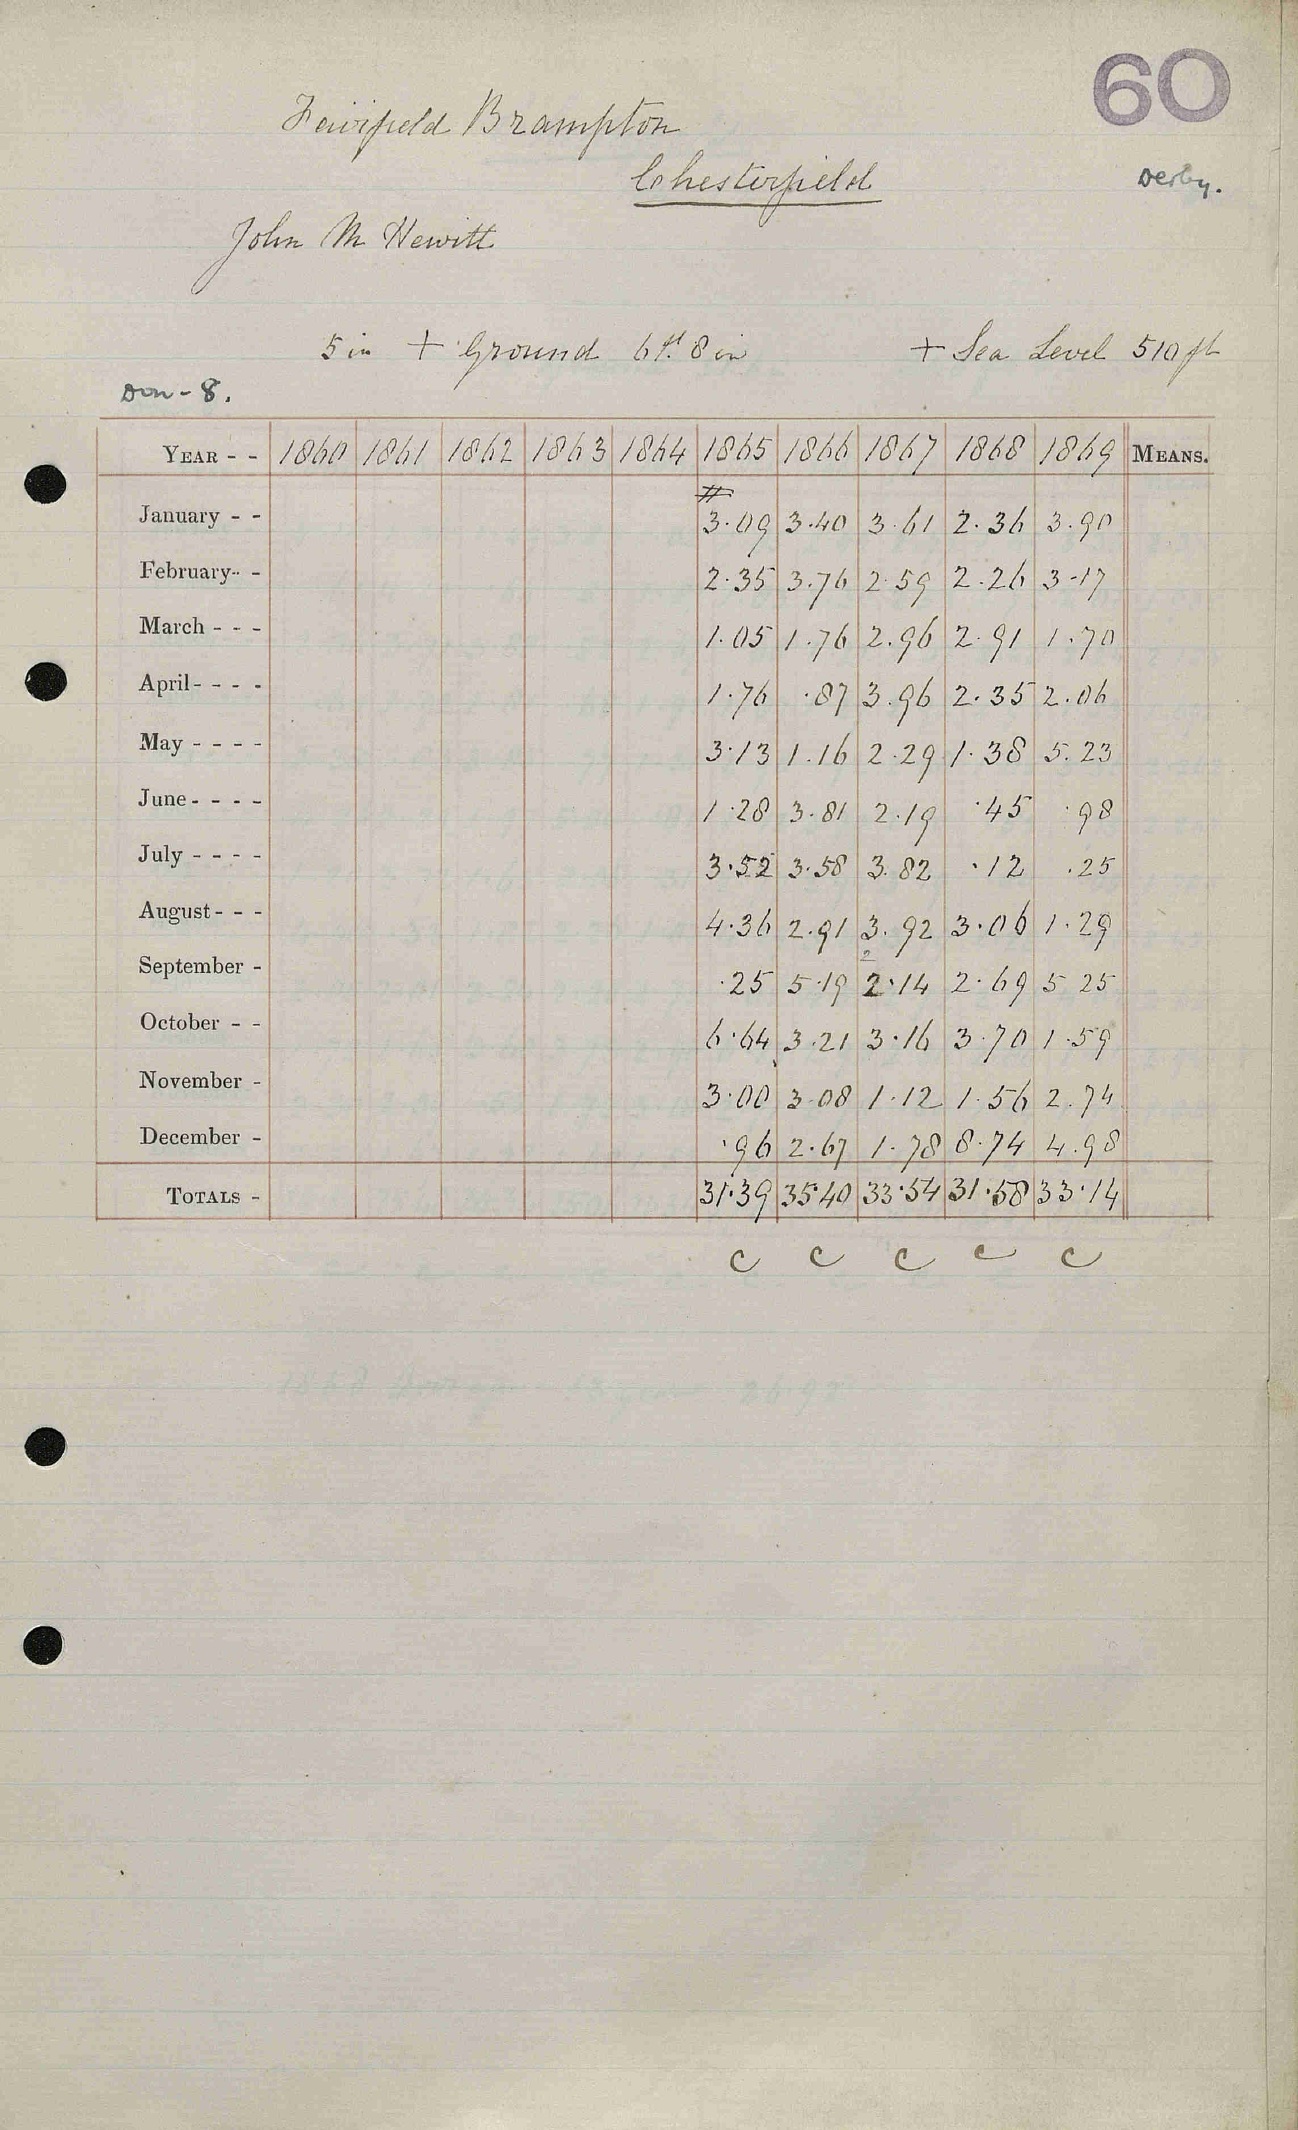 60
Fairfield Brampton
Chesterfield
Derby.
John M Hewitt
5 in + Ground 6 ft. 8 in + Sea Level 510 ft
Don - 8.
YEAR - - 1860 1861 1862 1863 1864 1865 1866 1867 1868 1869 MEANS.
January - - 3.09 3.40 3.61 2.36 3.90
February - - 2.35 3.76 2.59 2.26 3.17
March - - - 1.05 1.76 2.96 2.91 1.70
April - - - - 1.76 .87 3.96 2.35 2.06
May - - - - 3.13 1.16 2.29 1.38 5.23
June - - - - 1.28 3.81 2.19 .45 .98
July - - - - 3.52 3.58 3.82 .12 .25
August - - - 4.36 2.91 3.92 3.06 1.29
2
September - .25 5.19 2.14 2.69 5 25
October - - 6.64 3.21 3.16 3.70 1.59
November - 3.00 3.08 1.12 1.56 2.74
December - .96 2.67 1.78 8.74 4.98
TOTALS - 31.39 35 40 33.54 31.58 33.14
c c c c c